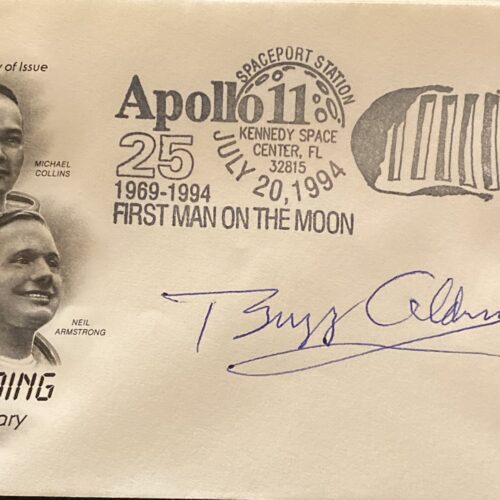 y of Issue
SPACEPORT STATION
Apollo 11
KENNEDY SPACE
CENTER, FL
32815
JULY 20, 1994
25
1969-1994
FIRST MAN ON THE MOON
MICHAEL
COLLINS
NEIL
ARMSTRONG
Buzz Aldrin
DING
ary